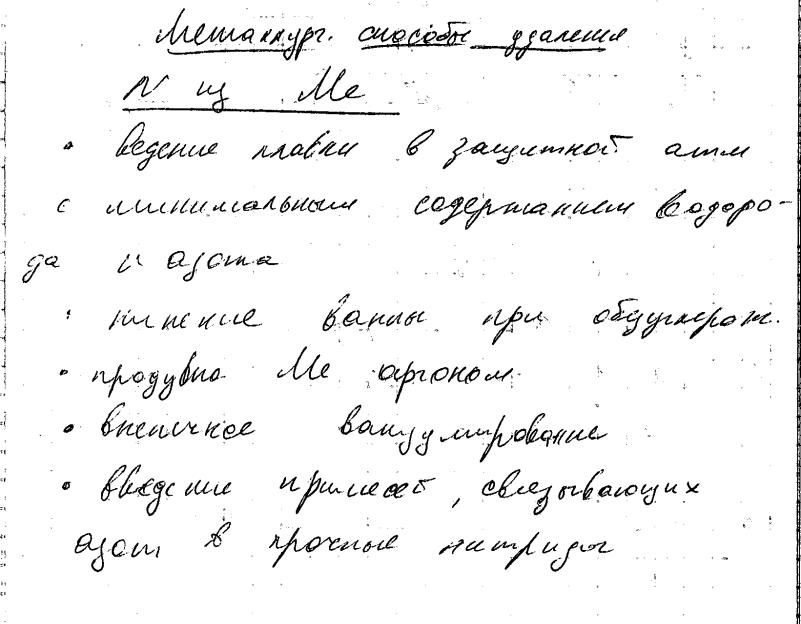 Металлург. способы удаления
N из Ме
• ведение плавки в защитной атм
с минимальным содержанием водоро-
да и азота
• кипение ванны при обезуглерож.
• продувка Ме аргоном
• внепечное вакуумирование
• введение примесей, связывающих
азот в прочные нитриды